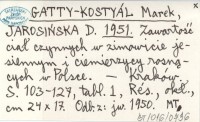 GATTY-KOSTYÁL Marek,
JAROSIŃSKA D. 1951. Zawartość
ciał czynnych w zimowicie je-
siennym i ciemierzycy rosną-
cych w Polsce. — Kraków.
S. 103-127, tabl. 1, Rés., okł.,
cm 24 x 17. Odb. z: jw. 1950. MT